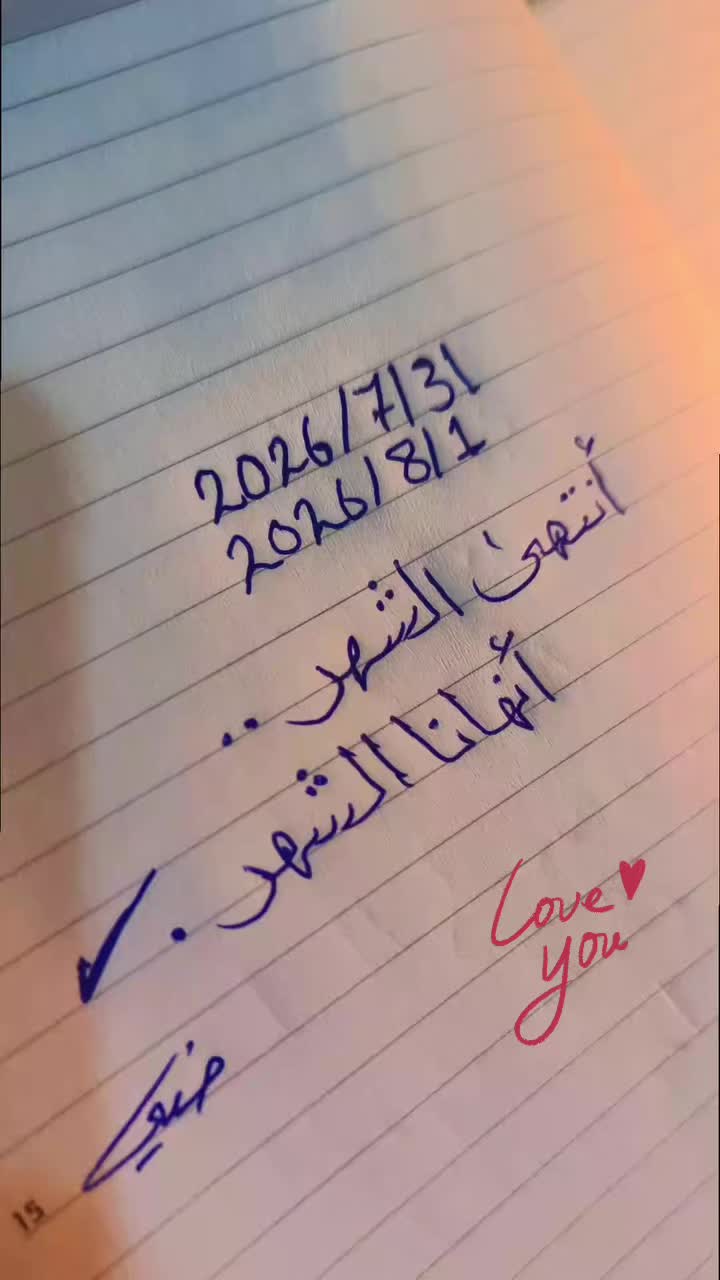 2026/7/31
2026/8/1
أنتهى الشهر ..
أنهانا الشهر .
Love
you
15